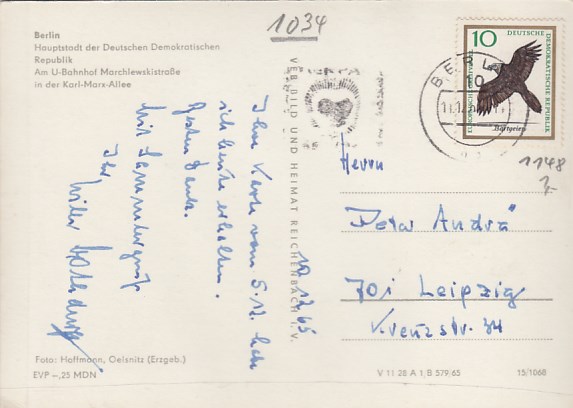 1034
Berlin
Hauptstadt der Deutschen Demokratischen
Republik
Am U-Bahnhof Marchlewskistraße
in der Karl-Marx-Allee
VEB BILD UND HEIMAT REICHENBACH i. V.
10
DEUTSCHE
DEMOKRATISCHE REPUBLIK
Bartgeier
BERLIN
10
1148
10.12.65
Ihre Karte vom 5.12. habe
ich heute erhalten.
Besten Dank.
Mit Sammlergruß
Ihr
Herrn
Peter André
701 Leipzig
Kreuzstr. 34
Foto: Hoffmann, Oelsnitz (Erzgeb.)
EVP –,25 MDN
V 11 28 A 1 B 579/65
15/1068